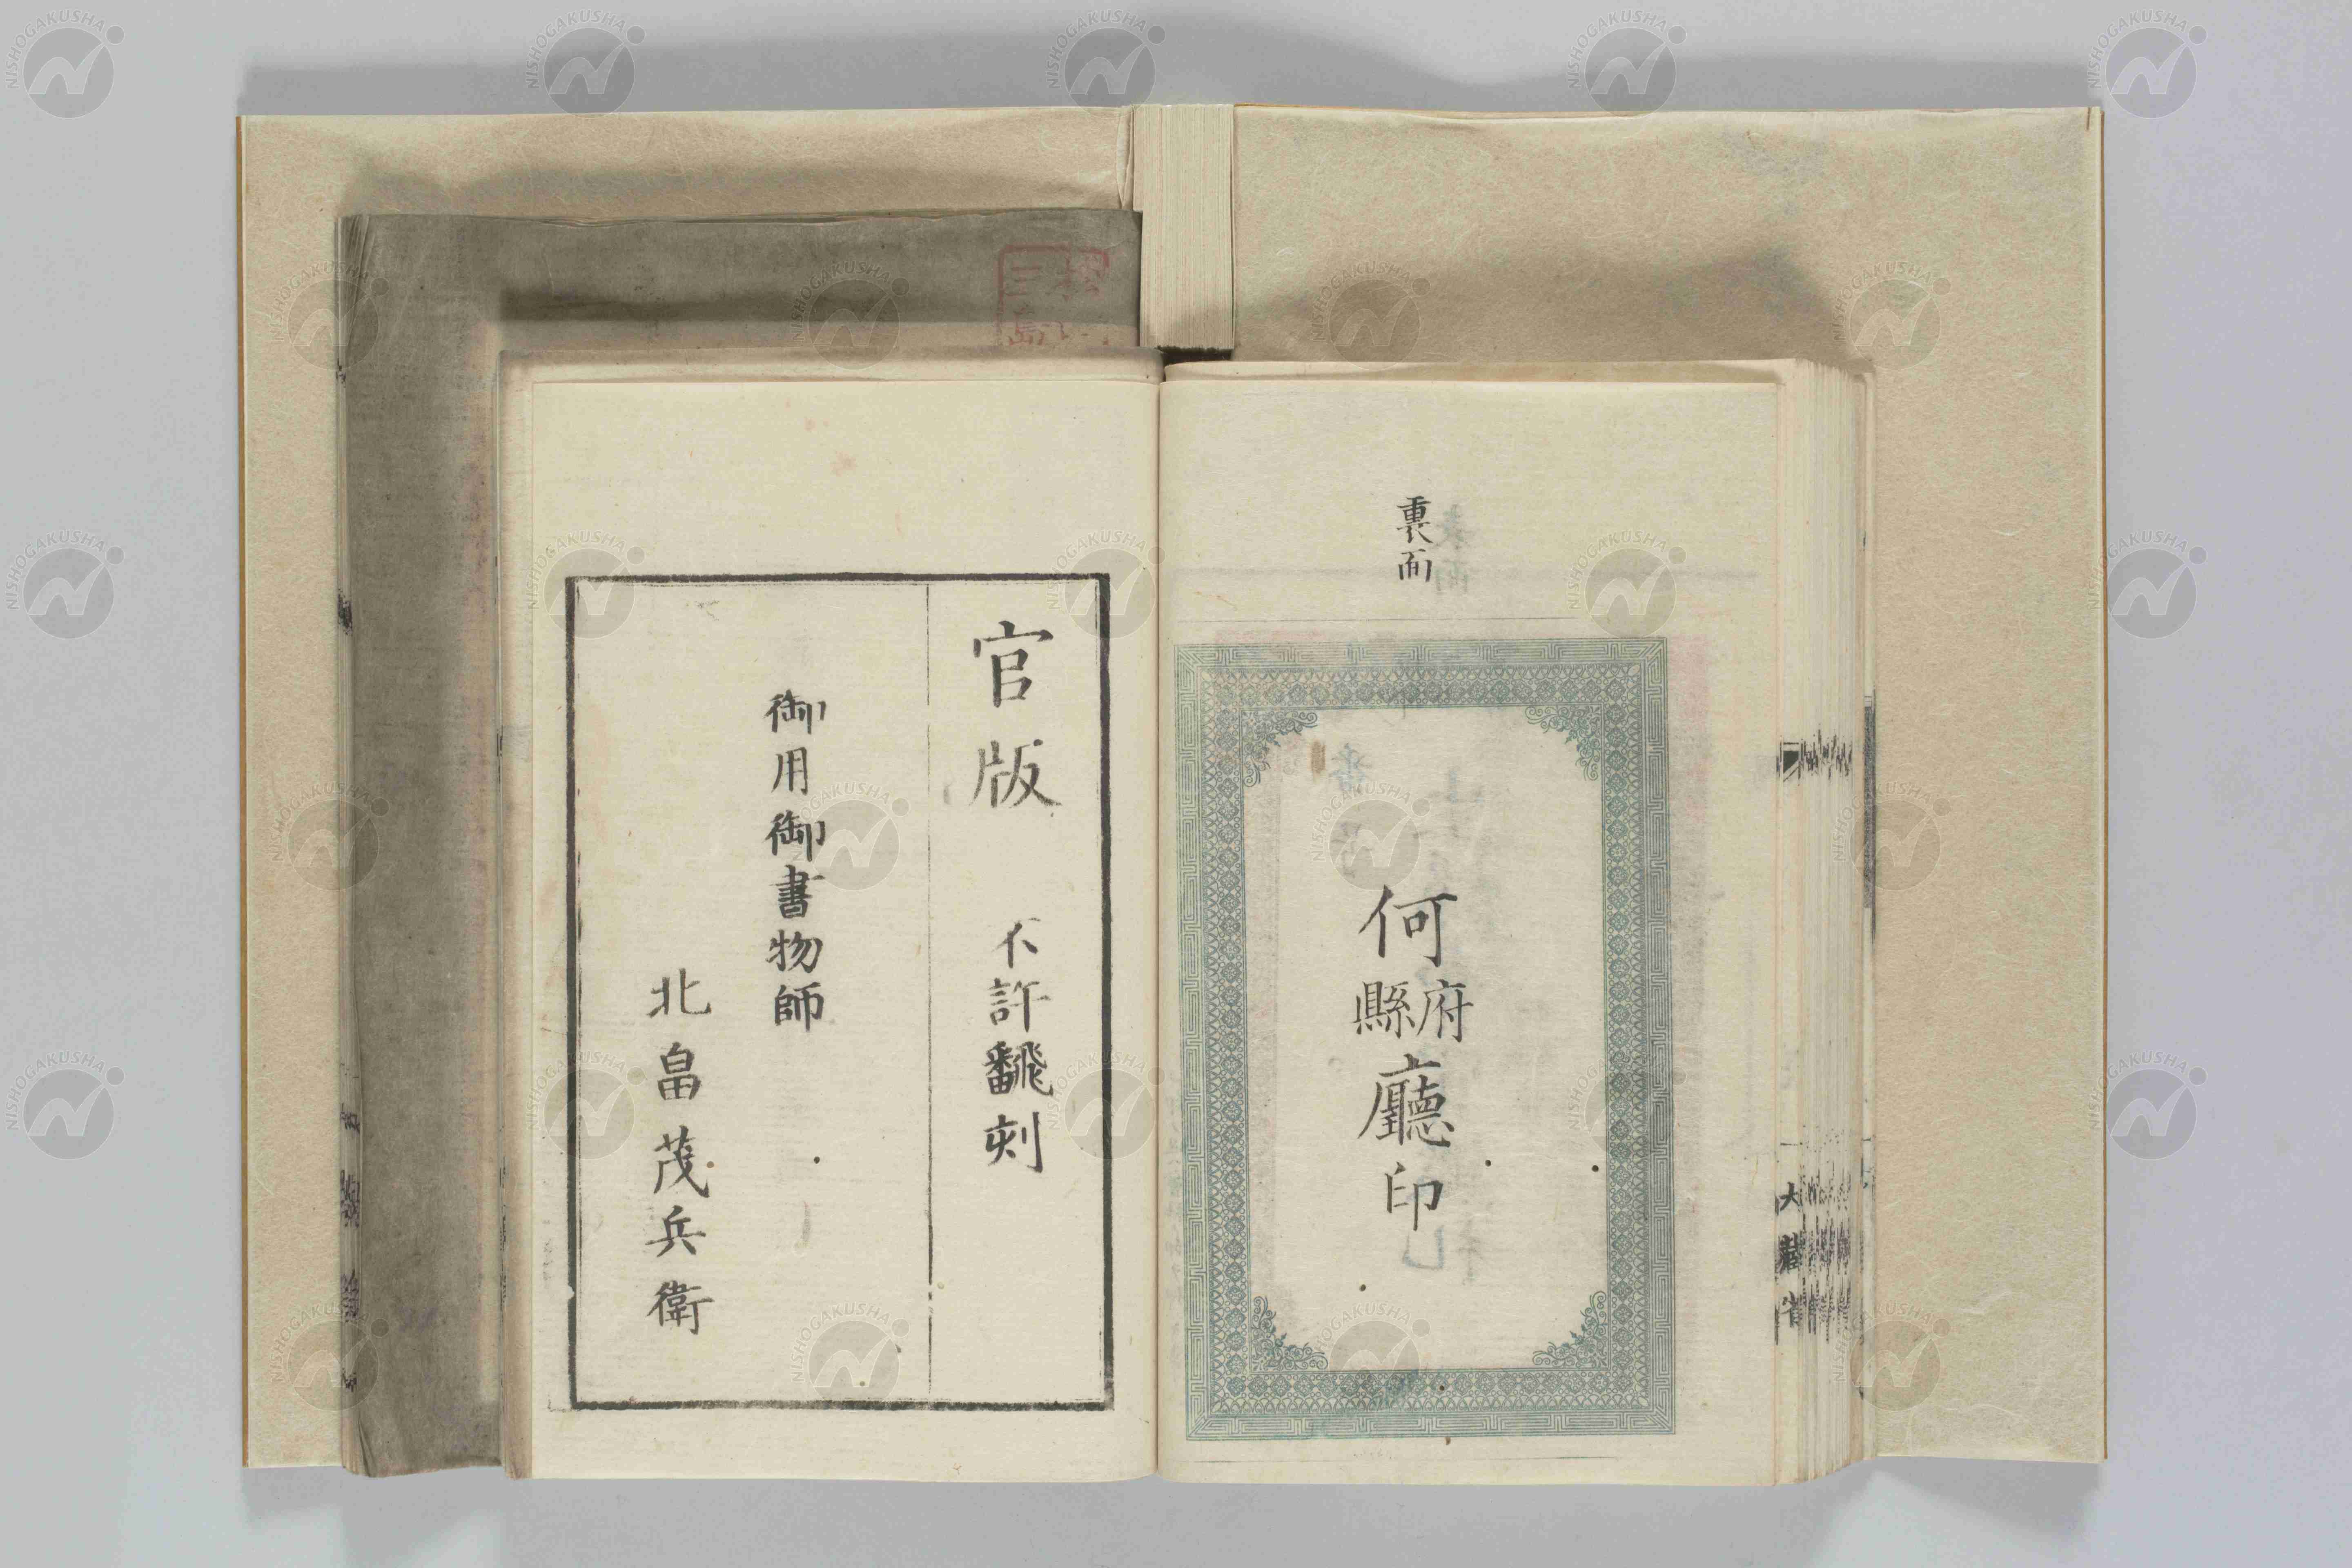 裏面
何府縣廳印
官版 不許飜刻
御用御書物師
北畠茂兵衛
大藏省
三
島
NISHOGAKUSHA